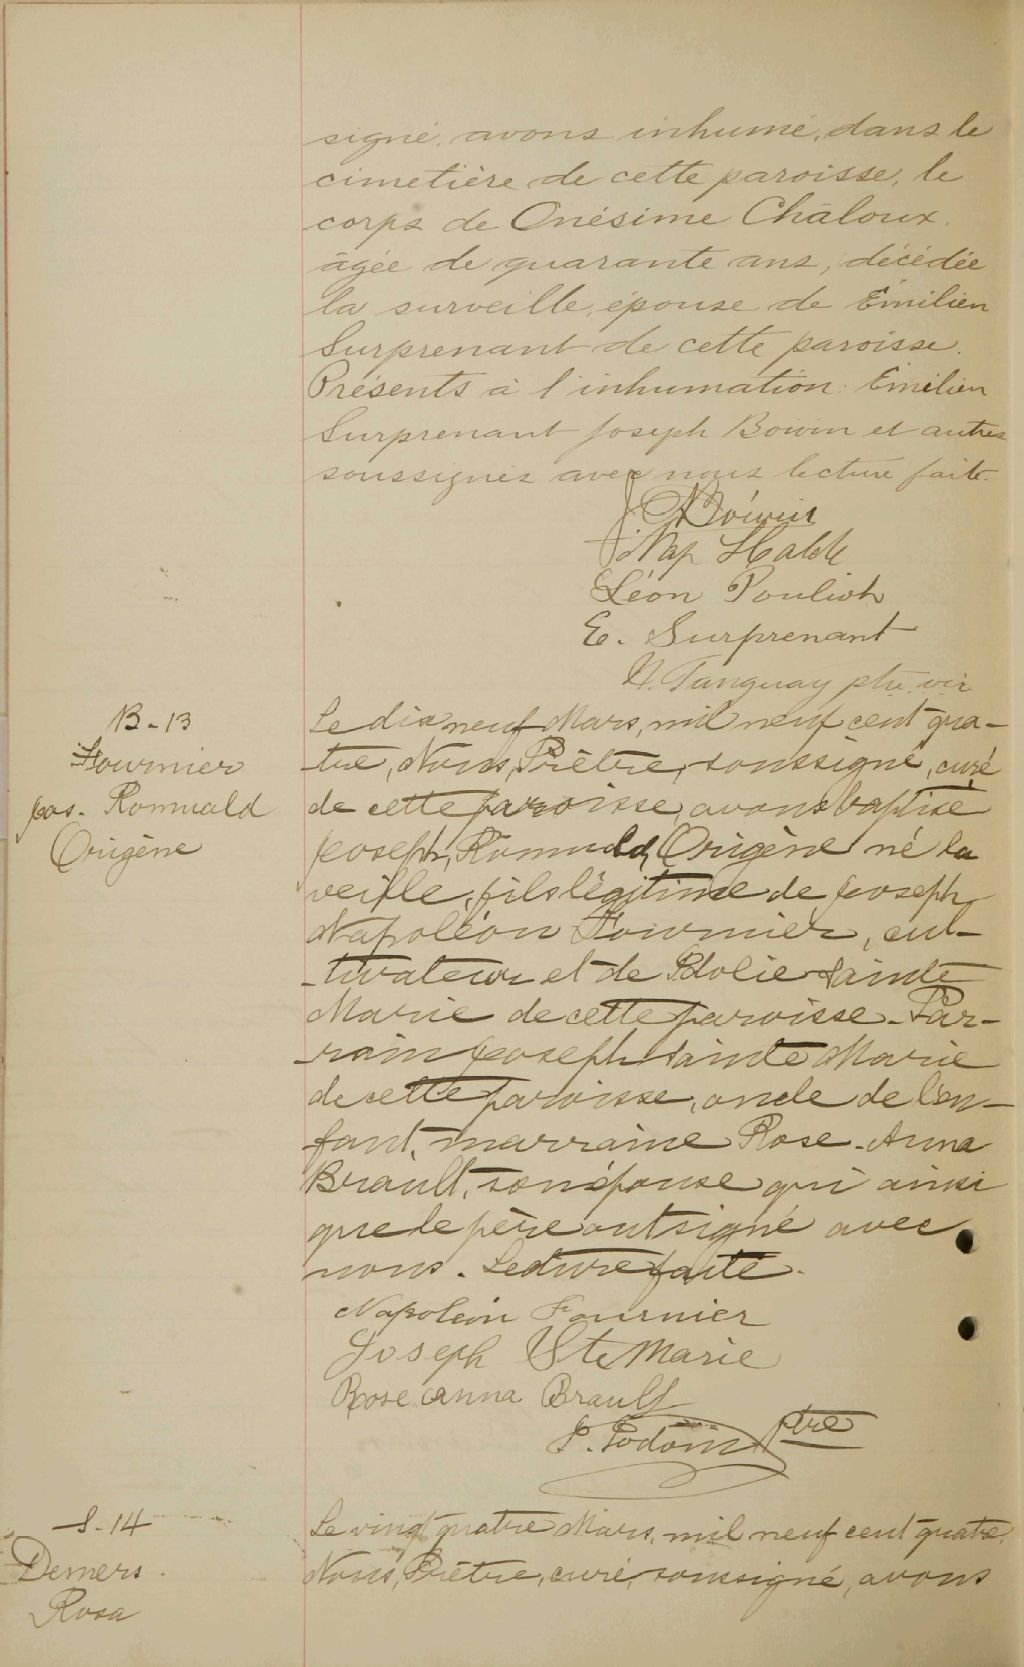 signé, avons inhumé, dans le
cimetière de cette paroisse, le
corps de Onésime Châloux.
âgée de quarante ans, décédée
la surveille, épouse de Émilien
Surprenant de cette paroisse.
Présents à l'inhumation: Émilien
Surprenant Joseph Boivin et autres
soussignés avec nous lecture faite.
J. Boivin
Nap Halde
Léon Pouliot
E. Surprenant
N. Tanguay ptre vic
B-13
Fournier
Jos. Romuald
Origène
Le dix neuf Mars, mil neuf cent qua-
-tre, Nous, Prêtre, soussigné, curé
de cette paroisse, avons baptisé
Joseph, Romuald, Origène né la
veille, fils légitime de Joseph
Napoléon Fournier, cul-
-tivateur et de Sainte
Marie de cette paroisse - Par-
-rain Joseph Sainte Marie
de cette paroisse, oncle de l'en-
fant, marraine Rose-Anna
Brault, son épouse qui ainsi
que le père ont signé avec
nous. Lecture faite.
Napoléon Fournier
Joseph Ste Marie
Rose anna Brault
ptre
S-14
Demers
Rosa
Le vingt quatre Mars, mil neuf cent quatre,
Nous, Prêtre, curé, soussigné, avons